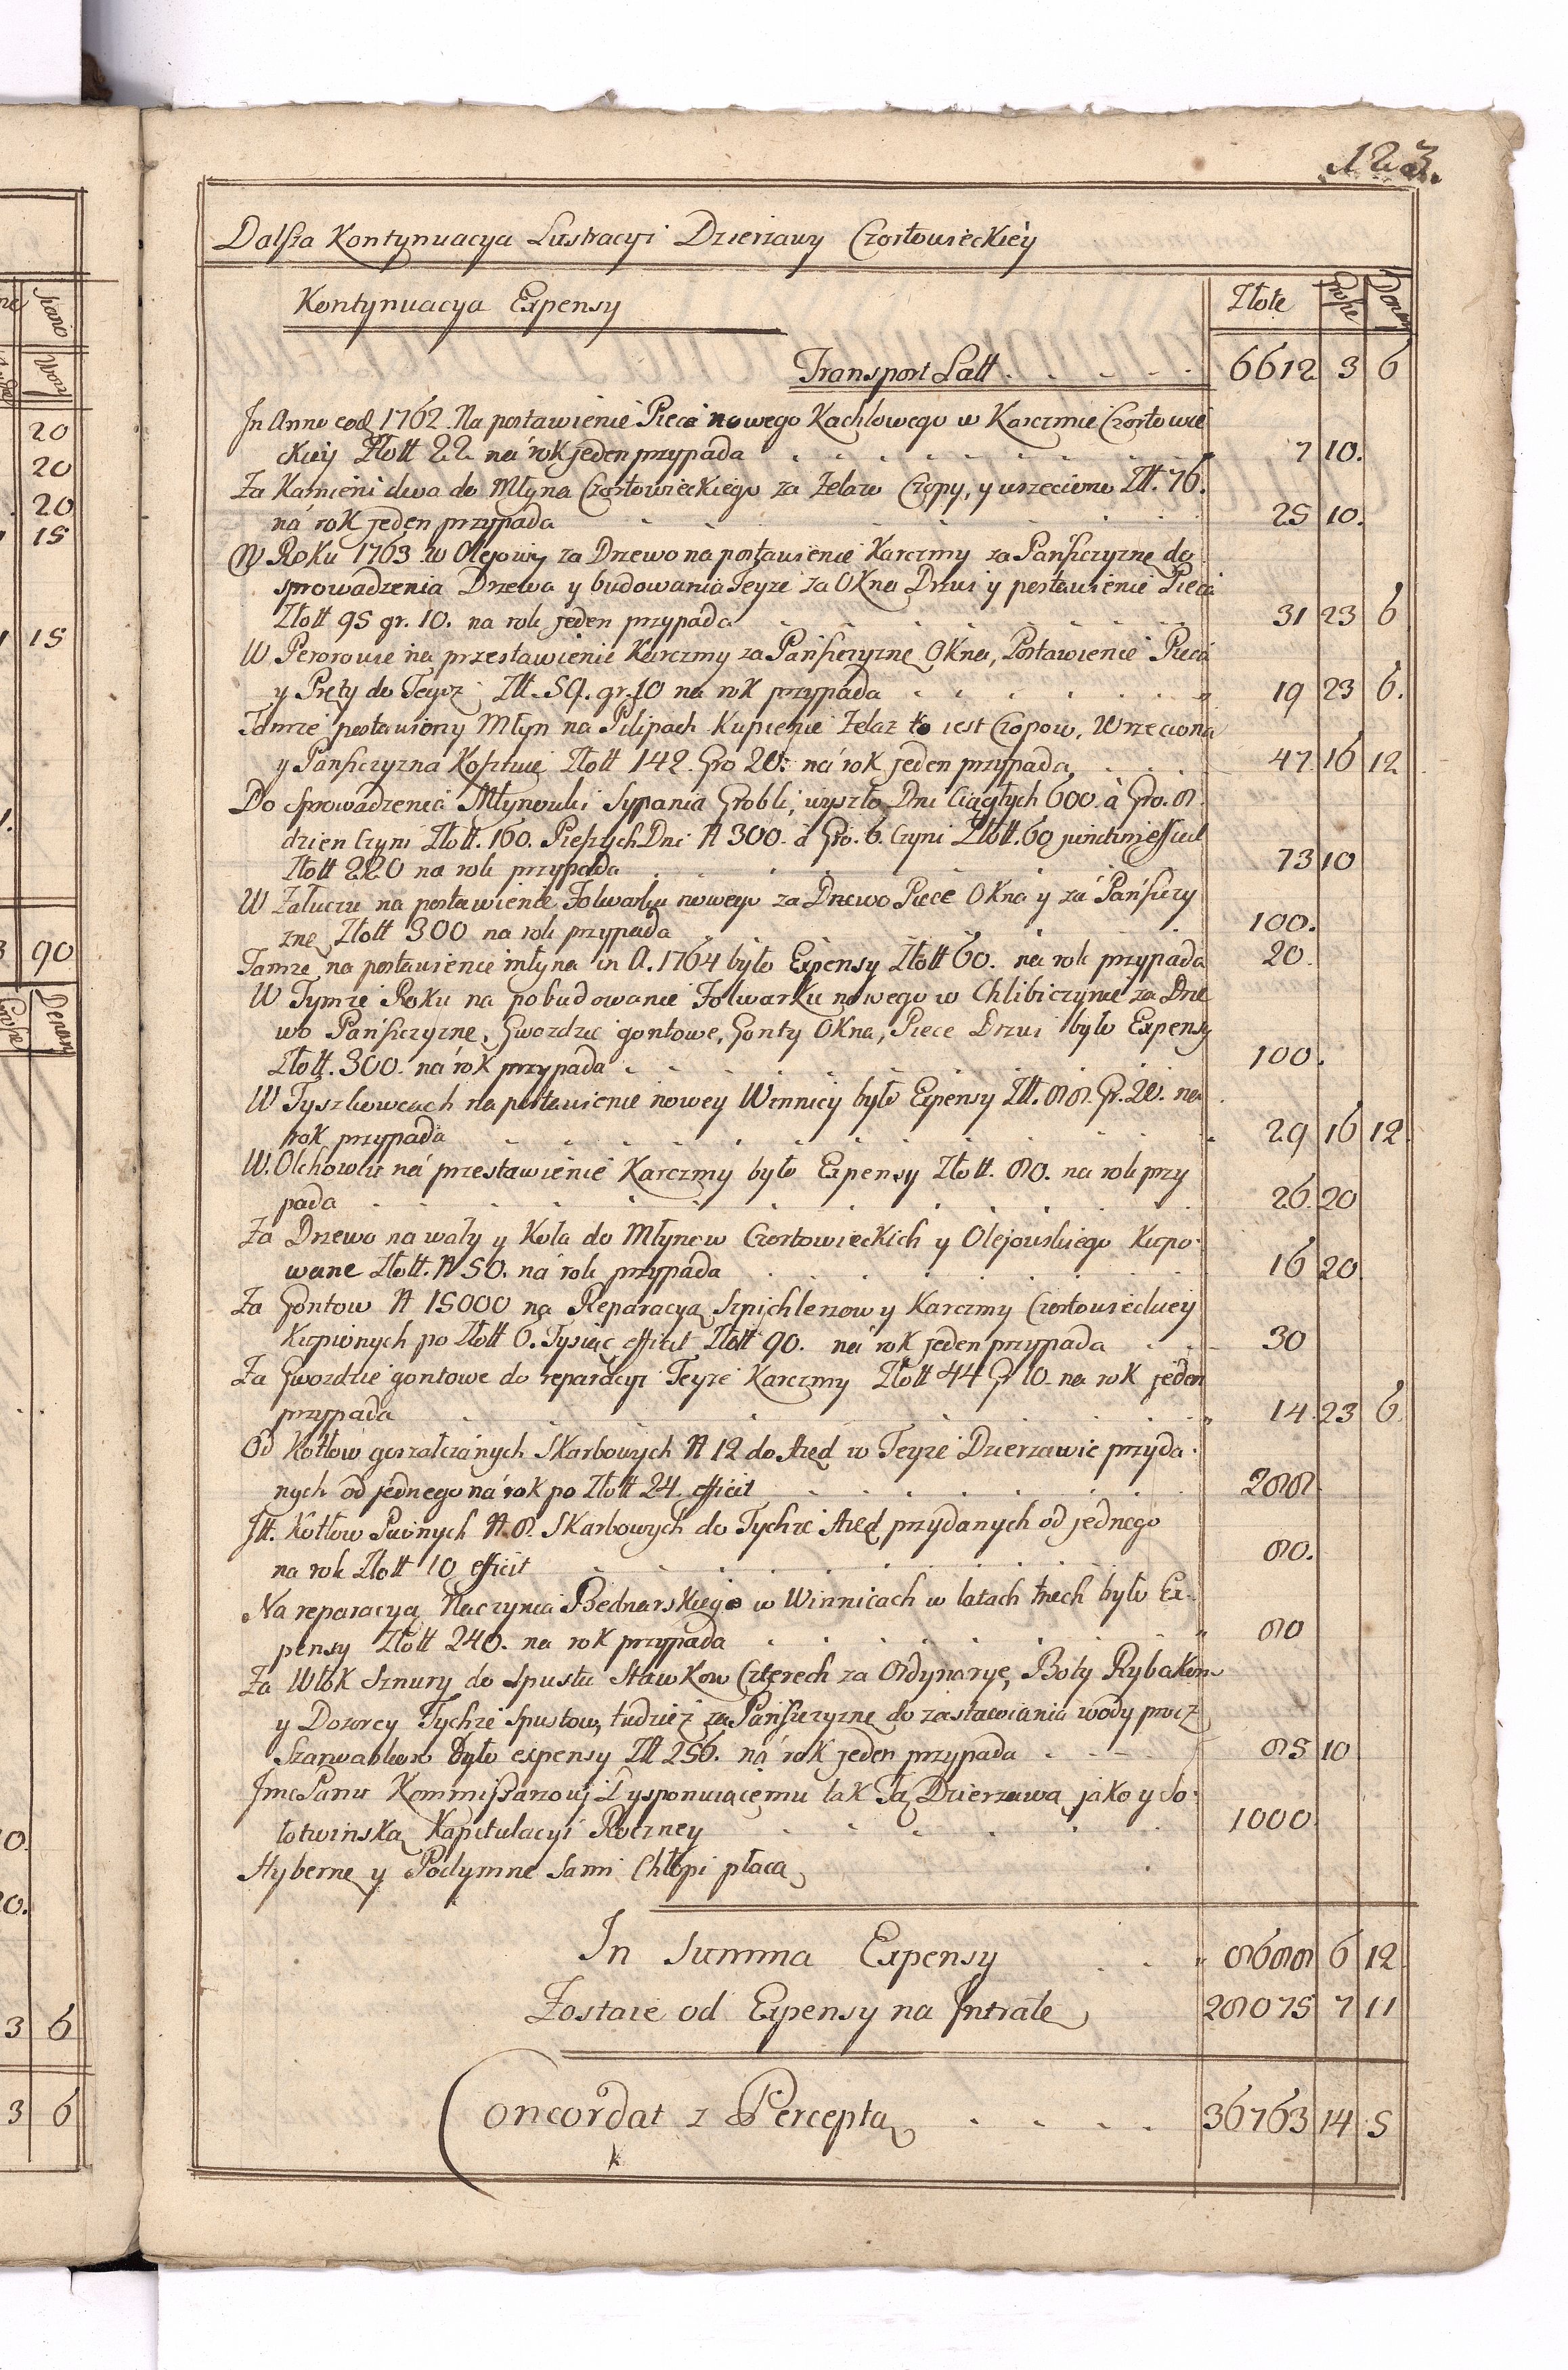 123.
Dalsza Kontynuacya Lustracyi Dzierzawy Czortowieckiey
Kontynuacya Expensy Złote Grosze Denar
Transport Latt 6612 3 6
In Anno eod 1762. Na postawienie Pieca nowego Kachlowego w Karczmie Czortowie
ckiey Złott 22 na rok jeden przypada 7 10.
Za Kamieni dwa do Młyna Czortowieckiego za Zelazo Czopy, y wrzeciono Złt. 76.
na rok jeden przypada 25 10.
W Roku 1763 w Olejowy za Drzewo na postawienie Karczmy za Pańszczyznę do
sprowadzenia Drzewa y budowania Teyze za Okna Drzwi y postawienie Pieca
Złott 95 gr. 10. na rok jeden przypada 31 23 6
W Perorowie na przestawienie Karczmy za Pańszczyznę Okna, Postawienie Pieca
y Pręty do Teyoz Złt. 59. gr. 10 na rok przypada 19 23 6.
Tamze postawiony Młyn na Pilipach Kupienie Zelaz to iest Czopow, Wrzeciona
y Pańszczyzna Kosztuie Złott 142. Gro 20: na rok jeden przypada 47. 16 12.
Do sprowadzenia Młynowki Sypania Grobli, wyszło Dni Ciągłych 600. a Gro. 8.
dzien Czyni Złott. 160. Pieszych Dni N 300. a Gro. 6. Czyni Złott. 60 junctim efficit
Złott 220 na rok przypada 73 10
W Załuczu na postawienie Folwarku nowego za Drzewo Piece Okna y za Pańszczy
znę Złott 300 na rok przypada 100.
Tamze na postawienie młyna in A. 1764 było Expensy Złott 60. na rok przypada 20.
W Tymze Roku na pobudowanie Folwarku nowego w Chlibiczynie za Drze
wo Pańszczyznę, Gwozdzie gontowe, Gonty Okna, Piece Drzwi było Expensy
Złott. 300. na rok przypada 100.
W Tyszkowcach na postawienie nowey Winnicy było Expensy Złt. 88. Gr. 20. na
rok przypada 29 16 12.
W. Olchowcu na przestawienie Karczmy było Expensy Złott. 80. na rok przy
pada 26. 20
Za Drzewo na wały y Koła do Młynow Czortowieckich y Olejowskiego Kupo-
wane Złott. N 50. na rok przypada 16 20
Za Gontow N 15000 na Reparacyą Szpichlerzow y Karczmy Czortowieckiey
Kupionych po Złott 6. Tysiąc efficit Złott 90. na rok jeden przypada 30
Za Gwozdzie gontowe do reparacyi Teyze Karczmy Złott 44 Gr 10. na rok jeden
przypada 14. 23 6.
Od Kotłow gorzałczanych Skarbowych N 12 do Aręd w Teyze Dzierzawie przyda-
nych od jednego na rok po Złott 24. efficit 288.
Itt. Kotłow Piwnych N. 8. Skarbowych do Tychze Aręd przydanych od jednego
na rok Złott 10 efficit 80.
Na reparacyą Naczynia Bednarskiego w Winnicach w latach trzech było Ex-
pensy Złott 240. na rok przypada 80
Za Włok Sznury do Spustu Stawkow Czterech za Ordynaryę, Boty Rybakom
y Dozorcy Tychze Spustow, tudziez za Pańszczyznę do zastawiania wody procz
Szarwarkow było expensy Złt 256. na rok jeden przypada 85 10
Jmc Panu Kommissarzowi Dysponuiącemu tak Tą Dzierzawą jako y So-
łotwinską Kapitulacyi Roczney 1000.
Hybernę y Podymne Sami Chłopi płacą
In Summa Expensy 8688 6 12.
Zostaie od Expensy na Intratę 28075 7 11
Concordat z Perceptą 36763 14 5